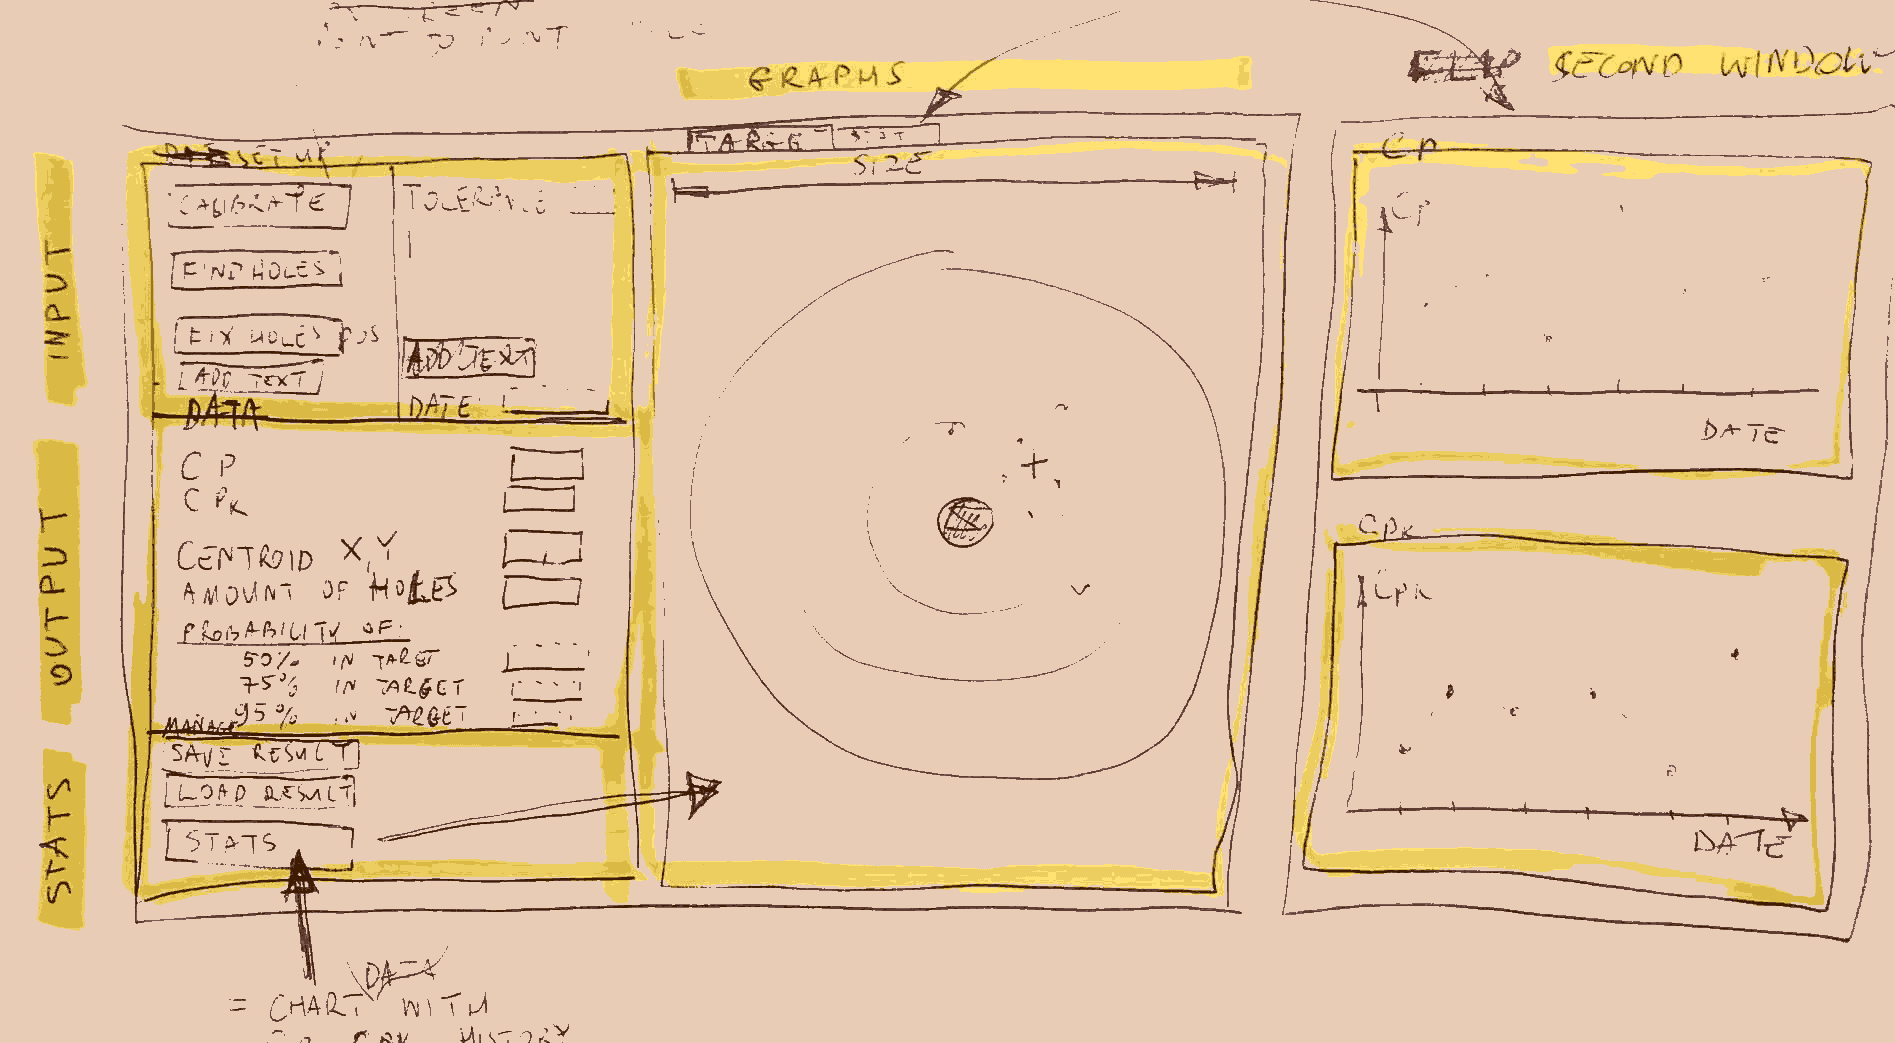 POINT TO POINT
GRAPHS
SECOND WINDOW
INPUT
OUTPUT
STATS
SET UP
CALIBRATE
FIND HOLES
FIX HOLES POS
ADD TEXT
TOLERANCE
ADD TEXT
DATE:
DATA
CP
CPK
CENTROID X,Y
AMOUNT OF HOLES
PROBABILITY OF:
50% IN TARGET
75% IN TARGET
95% IN TARGET
MANAGE
SAVE RESULT
LOAD RESULT
STATS
DATA
= CHART WITH
CPK HISTORY
TARGET
SIZE
CP
CP
DATE
CPK
CPK
DATE